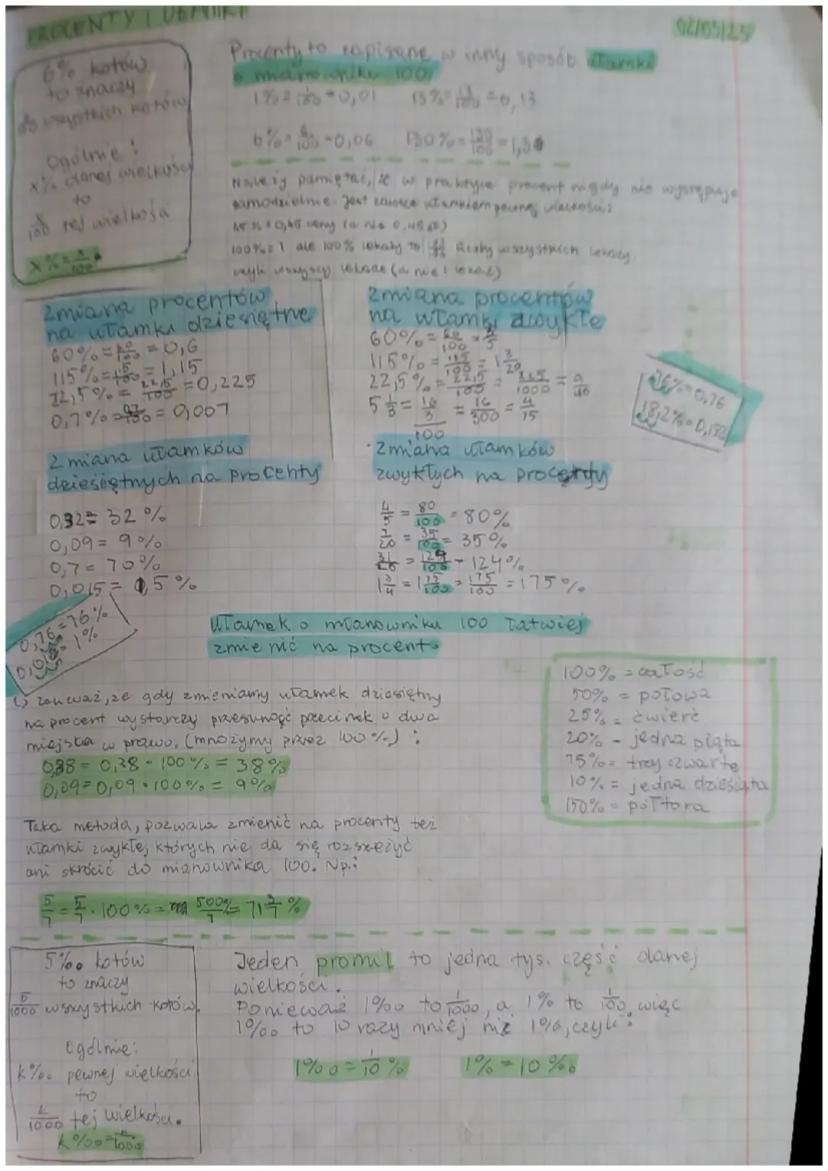 PROCENTY I UŁAMKI
02/05/25
6% kotów
to znaczy
wszystkich kotów
Ogólnie:
x% danej wielkości
to
x/100 tej wielkości
x% = x/100
Procenty to zapisane w inny sposób ułamki
o mianowniku 100.
1% = 1/100 = 0,01 13% = 13/100 = 0,13
6% = 6/100 = 0,06 130% = 130/100 = 1,3
Należy pamiętać, że w praktyce procent nigdy nie występuje
samodzielnie. Jest zawsze ułamkiem pewnej wielkości:
45% = 0,45 ceny (a nie 0,45 zł)
100% = 1 ale 100% lekarzy to liczby wszystkich lekarzy
czyli wszyscy lekarze (a nie 1 lekarz)
Zmiana procentów
na ułamki dziesiętne
60% = 60/100 = 0,6
115% = 115/100 = 1,15
22,5% = 22,5/100 = 0,225
0,7% = 0,7/100 = 0,007
Zmiana procentów
na ułamki zwykłe
60% = 60/100 = 3/5
115% = 115/100 = 1 3/20
22,5% = 22,5/100 = 225/1000 = 9/40
5 1/3 = 16/3 / 100 = 16/300 = 4/75
76% = 0,76
18,2% = 0,182
Zmiana ułamków
dziesiętnych na procenty
0,32 = 32%
0,09 = 9%
0,7 = 70%
0,015 = 1,5%
Zmiana ułamków
zwykłych na procenty
4/5 = 80/100 = 80%
7/20 = 35/100 = 35%
31/25 = 124/100 = 124%
1 3/4 = 1 75/100 = 175/100 = 175%
0,76 = 76%
0,01 = 1%
Ułamek o mianowniku 100 łatwiej
zmienić na procent.
zauważ, że gdy zmieniamy ułamek dziesiętny
na procent wystarczy przesunąć przecinek o dwa
miejsca w prawo. (mnożymy przez 100%) :
0,38 = 0,38 · 100% = 38%
0,09 = 0,09 · 100% = 9%
100% = całość
50% = połowa
25% = ćwierć
20% - jedna piąta
75% = trzy czwarte
10% = jedna dziesiąta
150% = półtora
Taka metoda, pozwala zmienić na procenty też
ułamki zwykłe, których nie da się rozszerzyć
ani skrócić do mianownika 100. Np.:
5/7 = 5/7 · 100% = 500/7% = 71 3/7 %
5‰ kotów
to znaczy
5/1000 wszystkich kotów.
Ogólnie:
k‰ pewnej wielkości
to
k/1000 tej wielkości.
k‰ = k/1000
Jeden promil to jedna tys. część danej
wielkości.
Ponieważ 1‰ to 1/1000, a 1% to 1/100, więc
1‰ to 10 razy mniej niż 1%, czyli:
1‰ = 1/10 % 1% = 10‰